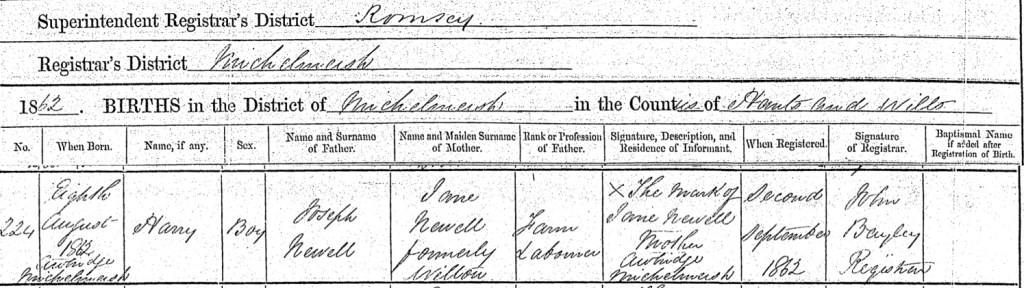 Superintendent Registrar's District Romsey
Registrar's District Michelmersh
1862. BIRTHS in the District of Michelmersh in the Counties of Hants and Wilts
No. When Born. Name, if any. Sex. Name and Surname of Father. Name and Maiden Surname of Mother. Rank or Profession of Father. Signature, Description, and Residence of Informant. When Registered. Signature of Registrar. Baptismal Name if added after Registration of Birth.
224
Eighth
August
1862
Awbridge
Michelmersh
Harry
Boy
Joseph
Newell
Jane
Newell
formerly
Farm
Labourer
X The mark of
Jane Newell
Mother
Awbridge
Michelmersh
Second
September
1862
John
Bayley
Registrar